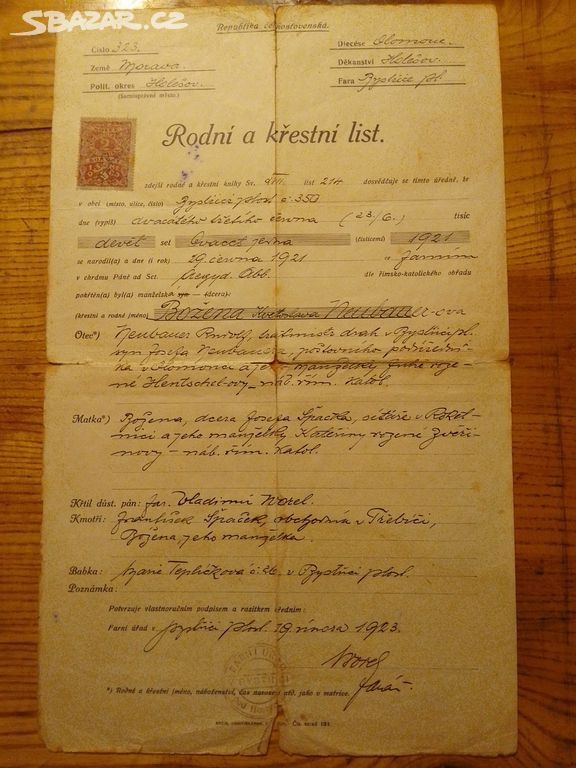 SBAZAR.CZ
Republika Československá.
Číslo 323.
Země Morava
Polit. okres Holešov
(Samosprávné město.)
Diecése Olomouc.
Děkanství Holešov.
Fara Bystřice p/.
Rodní a křestní list.
zdejší rodné a křestní knihy Sv. VIII. list 214 dosvědčuje se tímto úředně, že
v obci (místo, ulice, číslo) Bystřice p/Host. č. 350
dne (vypiš) dvacátého třetího června (23/6.) tisíc
devět set dvacet jedna (číslicemi) 1921
se narodil(a) a dne (i rok) 29. června 1921
v chrámu Páně ad Sct. Aegyd. Abb. dle římsko-katolického obřadu
pokřtěn(a) byl(a) manželský syn — (dcera)
(křestní a rodné jméno) Božena Květoslava Neubauer-ova
Otec*) Neubauer Rudolf, drah v Bystřici p/.
syn Josefa Neubauera, poštovního podúřední-
ka v Olomouci a jeho manželky roze-
né Hentschel-ovy, náb. řím. katol.
Matka*) Božena, dcera Josefa Špačka, cestáře v Roket-
nici a jeho manželky Kateřiny rozené Zvěři-
novy – náb. řím. katol.
Křtil důst. pán: far. Vladimír Worel.
Kmotři: František Špaček, obchodník v Třebíči,
Božena, jeho manželka.
Babka: Marie Tepličkova č. 26, v Bystřici p/Host.
Poznámka:
Potvrzuje vlastnoručním podpisem a razítkem úředním:
Farní úřad v Bystřici p/Host. 19. února 1923.
Worel
farář
*) Rodné a křestní jméno, náboženství, čas narození atd. jako v matrice.